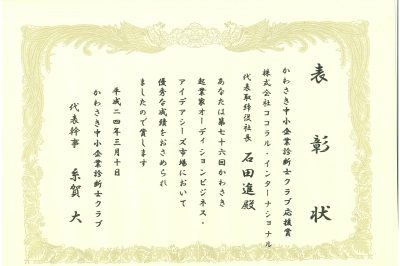 表彰状
かわさき中小企業診断士クラブ応援賞
株式会社ココラル・インターナショナル
代表取締役社長 石田進殿
あなたは第七十六回かわさき
起業家オーディションビジネス・
アイデアシーズ市場において
優秀な成績をおさめられ
ましたので賞します
平成二四年三月十日
かわさき中小企業診断士クラブ
代表幹事 糸賀 大